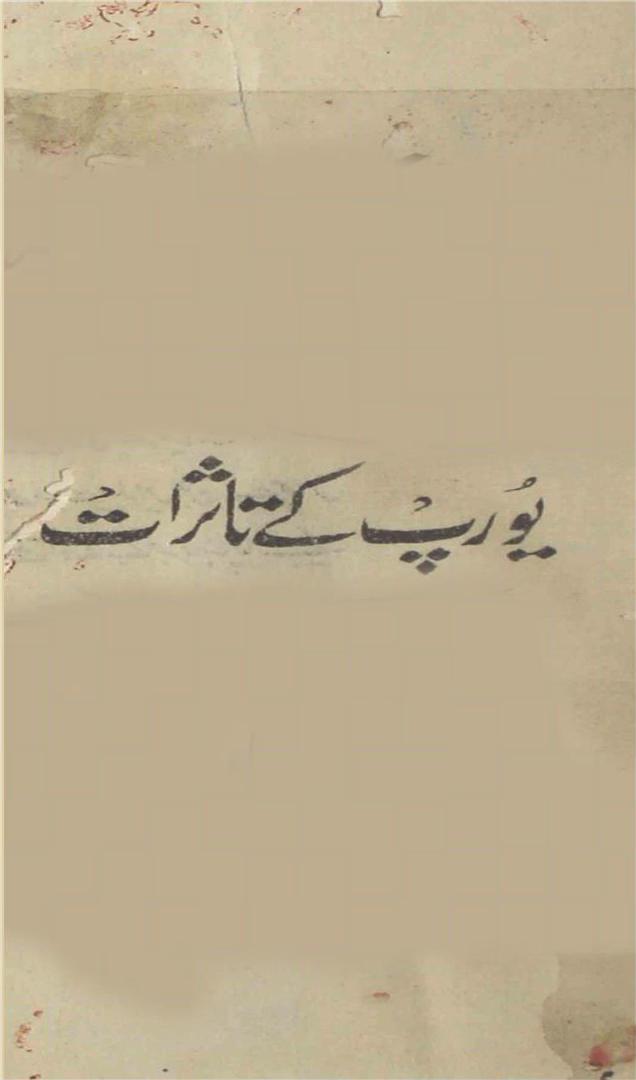 یُورپْ کے تاثراتْ